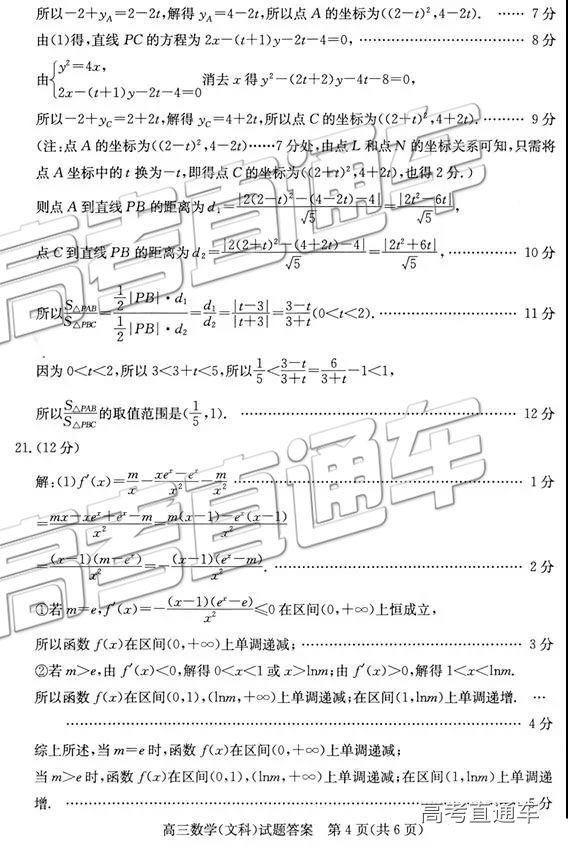 所以-2+y_A=2-2t,解得 y_A=4-2t,所以点 A 的坐标为((2-t)²,4-2t). …… 7分
由(1)得,直线 PC 的方程为 2x-(t+1)y-2t-4=0, …… 8分
由{y²=4x, 2x-(t+1)y-2t-4=0 消去 x 得 y²-(2t+2)y-4t-8=0,
所以-2+y_C=2+2t,解得 y_C=4+2t,所以点 C 的坐标为((2+t)²,4+2t). …… 9分
(注:点 A 的坐标为((2-t)²,4-2t)……7分处,由点 L 和点 N 的坐标关系可知,只需将
点 A 坐标中的 t 换为-t,即得点 C 的坐标为((2+t)²,4+2t),也得 2 分.)
则点 A 到直线 PB 的距离为 d₁=|2(2-t)²-(4-2t)-4|/√5=|2t²-6t|/√5,
点 C 到直线 PB 的距离为 d₂=|2(2+t)²-(4+2t)-4|/√5=|2t²+6t|/√5, …… 10分
所以 S△PAB/S△PBC=(1/2|PB|·d₁)/(1/2|PB|·d₂)=d₁/d₂=|t-3|/|t+3|=(3-t)/(3+t)(0<t<2). …… 11分
因为 0<t<2,所以 3<3+t<5,所以 1/5<(3-t)/(3+t)=6/(3+t)-1<1,
所以 S△PAB/S△PBC 的取值范围是(1/5,1). …… 12分
21.(12分)
解:(1)f′(x)=m/x-(xeˣ-eˣ)/x²-m/x² …… 1分
=(mx-xeˣ+eˣ-m)/x²=(m(x-1)-eˣ(x-1))/x²
=(x-1)(m-eˣ)/x²=-(x-1)(eˣ-m)/x². …… 2分
①若 m=e,f′(x)=-(x-1)(eˣ-e)/x²≤0 在区间(0,+∞)上恒成立,
所以函数 f(x)在区间(0,+∞)上单调递减; …… 3分
②若 m>e,由 f′(x)<0,解得 0<x<1 或 x>lnm;由 f′(x)>0,解得 1<x<lnm.
所以函数 f(x)在区间(0,1),(lnm,+∞)上单调递减;在区间(1,lnm)上单调递增. …
…… 4分
综上所述,当 m=e 时,函数 f(x)在区间(0,+∞)上单调递减;
当 m>e 时,函数 f(x)在区间(0,1),(lnm,+∞)上单调递减;在区间(1,lnm)上单调递
增. …… 5分
高考直通车
高三数学(文科)试题答案 第 4 页(共 6 页)
高考直通车
高考直通车